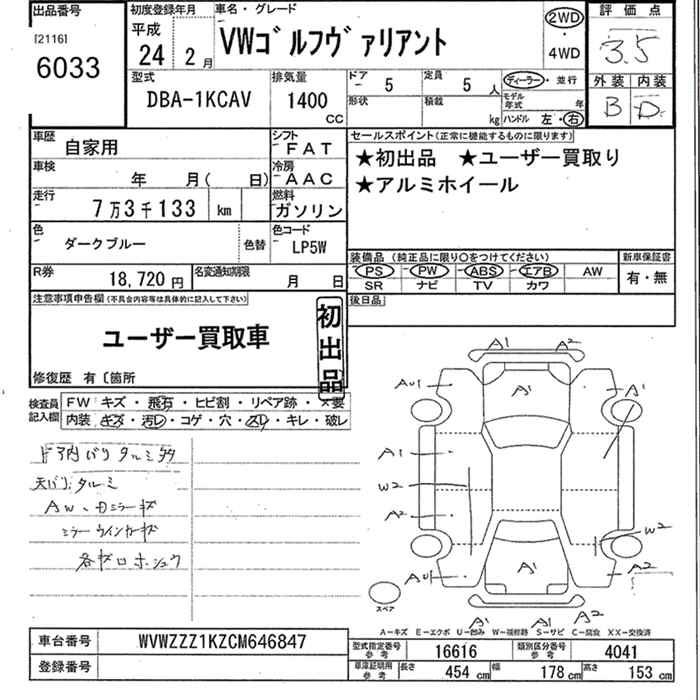 出品番号
[2116]
6033
初度登録年月
平成
24 2月
車名・グレード
VWゴルフヴァリアント
2WD
・
4WD
評価点
3.5
外装 内装
B D
型式
DBA-1KCAV
排気量
1400
CC
ドア 5
定員 5 人
形状
積載 kg
ディーラー・並行
モデル年式 年
ハンドル 左・右
車歴
自家用
シフト
FAT
車検
年 月( 日)
冷房
AAC
走行
7万3千133 km
燃料
ガソリン
色
ダークブルー
色替
色コード
LP5W
R券
18,720円
名変通知期限
月 日
セールスポイント(正常に機能するものに限ります)
★初出品 ★ユーザー買取り
★アルミホイール
装備品 (純正品に限り○をつけてください)
PS PW ABS エアB AW
SR ナビ TV カワ
新車保証書
有・無
後日品
注意事項申告欄(不具合内容等は具体的に記入して下さい)
ユーザー買取車
初出品
修復歴 有〔箇所
検査員記入欄
FW キズ・飛石・ヒビ割・リペア跡・×要
内装 キズ・汚レ・コゲ・穴・スレ・キレ・破レ
ドア内バリ タルミ
天バリ タルミ
AW、ドミラーキズ
ミラーウインカーキズ
各キズ ホシュウ
A1 A2
AU1 A1 A1
A1
W2
A2
W2
AU1 A1 A2
A1 A1 A2
スペア
A－キズ E－エクボ U－凹み W－補修跡 S－サビ C－腐食 XX－交換済
車台番号
WVWZZZ1KZCM646847
登録番号
型式指定番号 参考
16616
類別区分番号 参考
4041
車庫証明用 参考
長さ 454 cm
幅 178 cm
高さ 153 cm